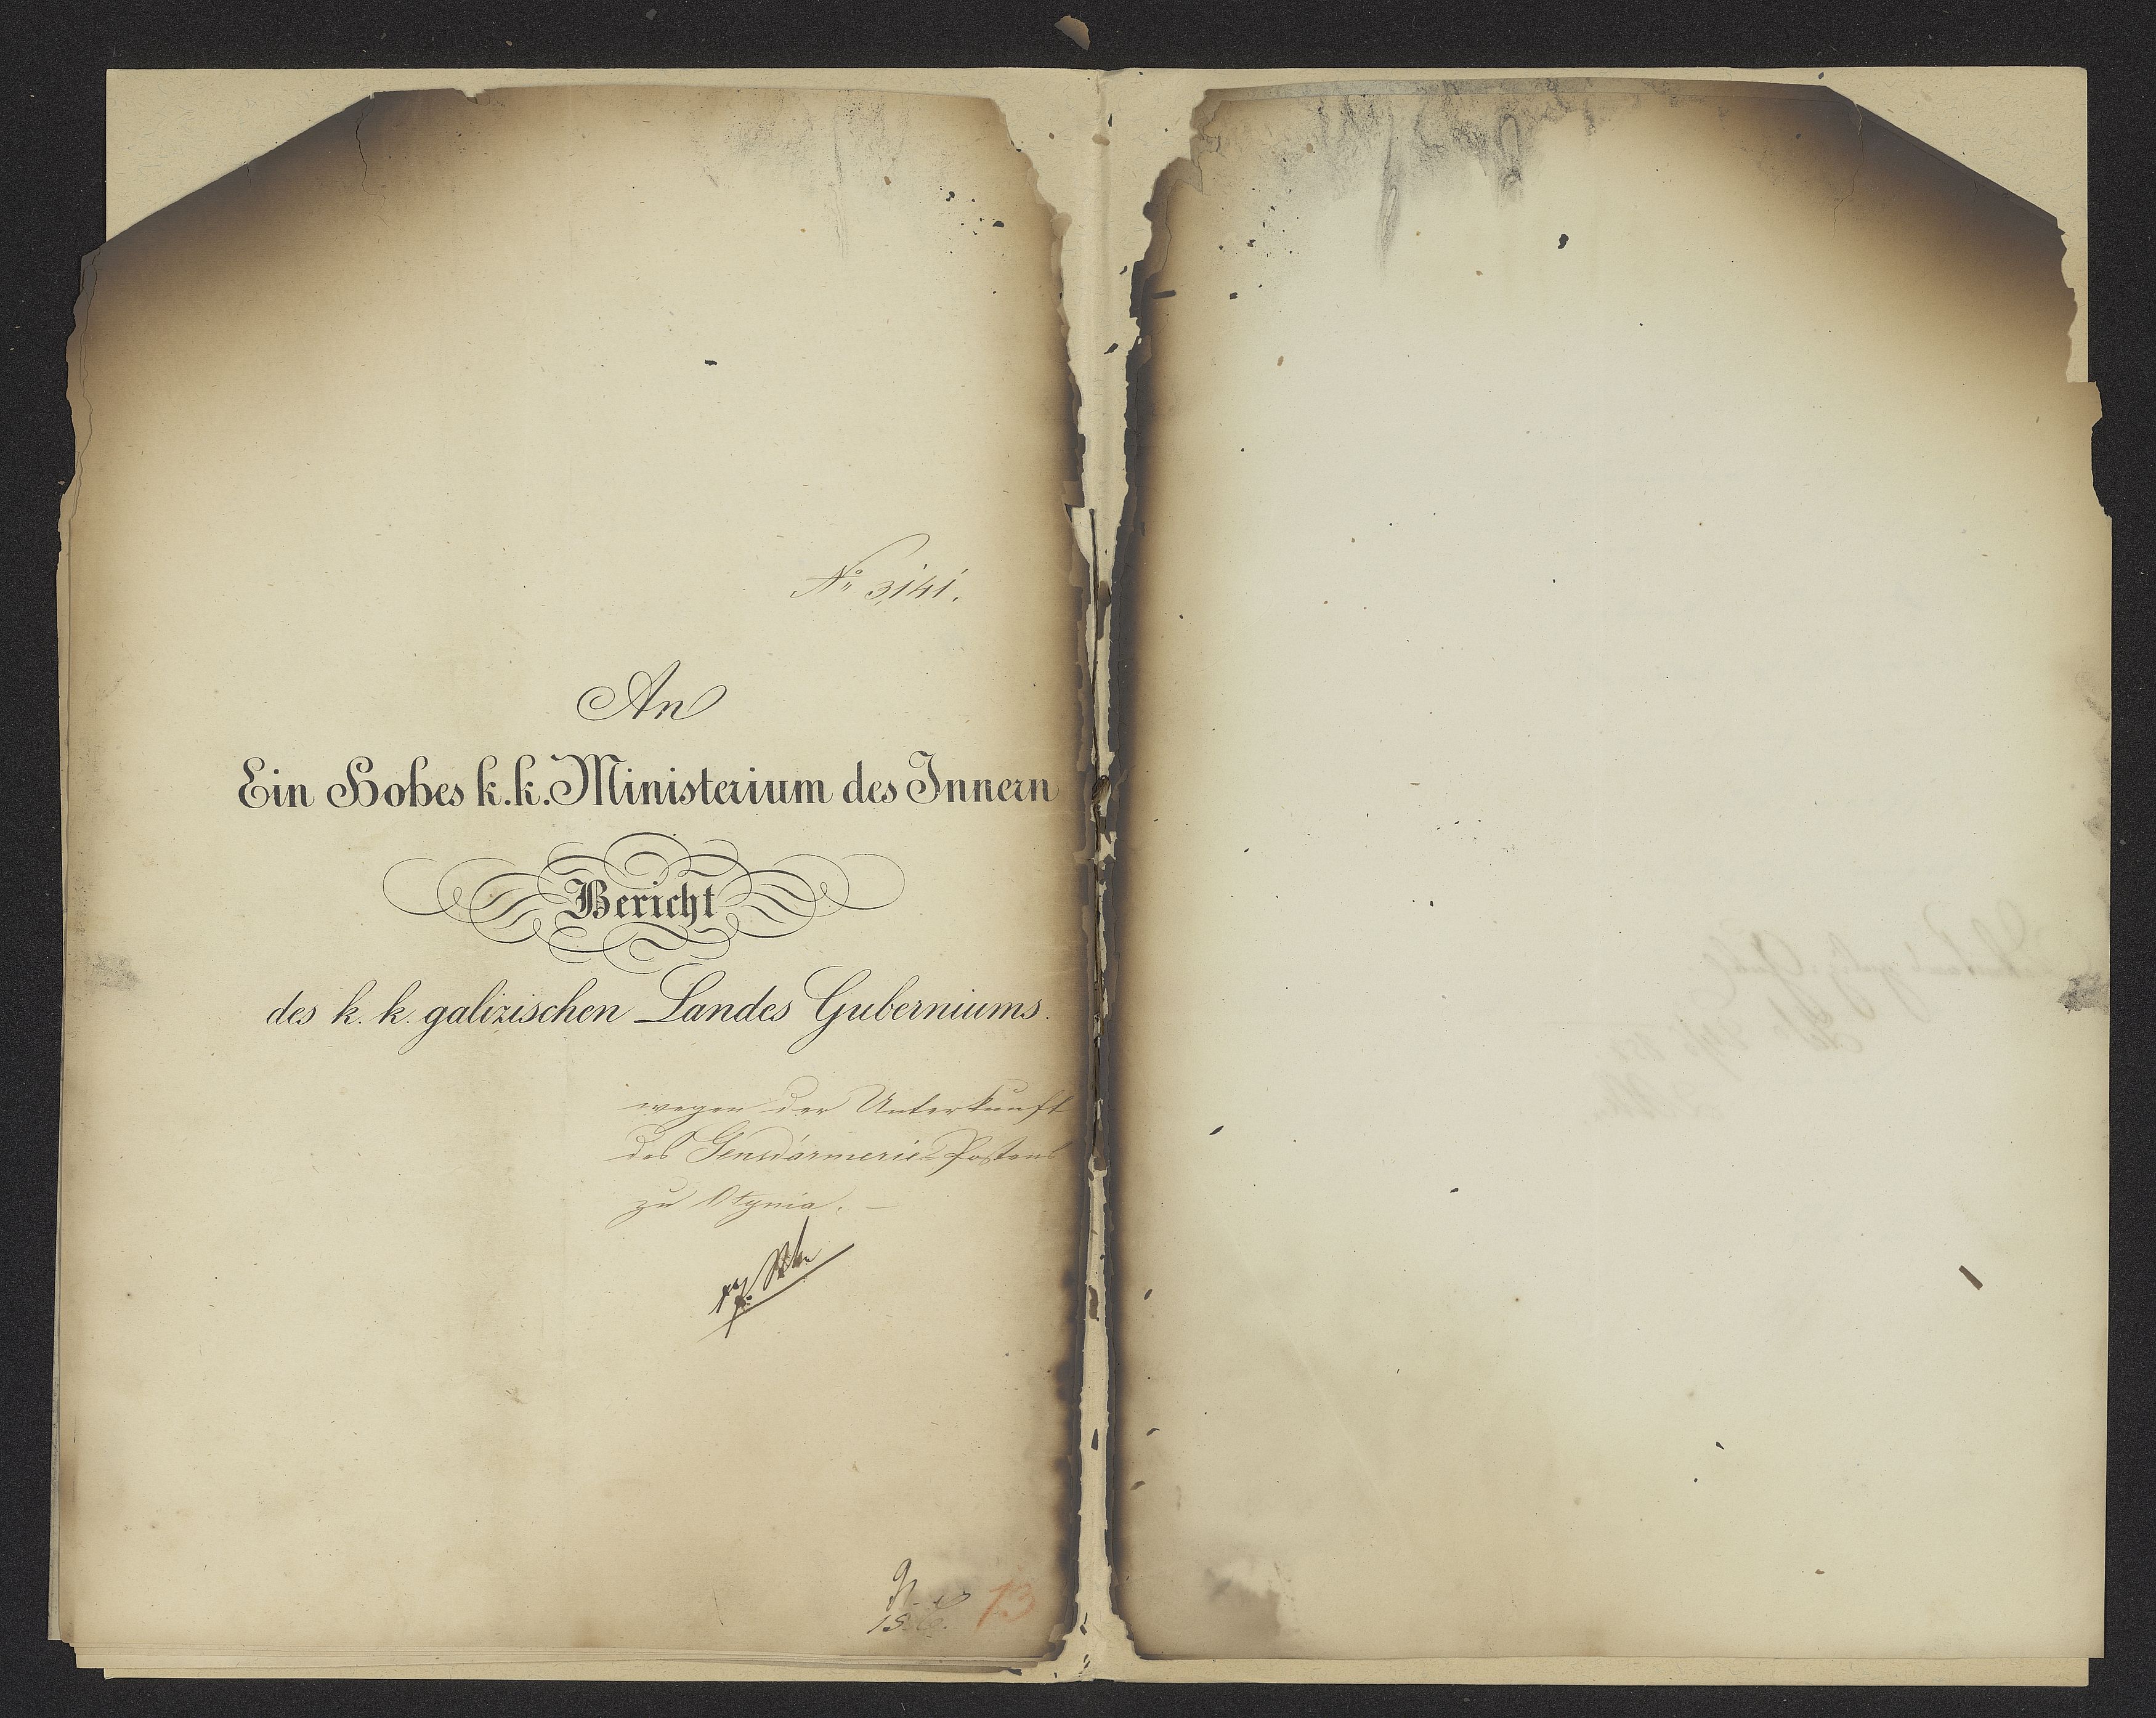 No 3,141.
An
Ein Hohes k.k. Ministerium des Innern
Bericht
des k. k. galizischen Landes Guberniums.
wegen der Unterkunft
des Gensdarmerie Postens
zu Otynia. —
13